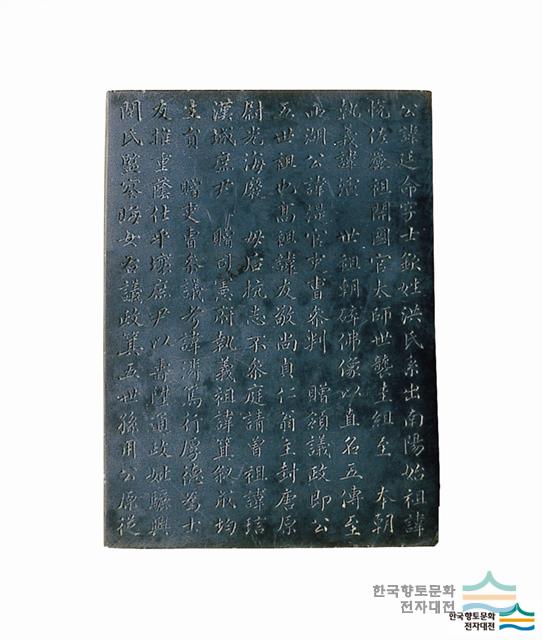 公諱廷命字士欽姓洪氏系出南陽始祖諱
悅佐麗祖開國官太師世襲圭組至 本朝
執義諱 世祖朝碎佛像以直名五傳至
西湖公諱官吏曹參判 贈領議政即公
五世祖也高祖諱友敬尚貞仁翁主封唐原
尉光海廢 母后抗志不參庭請曾祖諱
漢城庶尹 贈司憲府執義祖諱箕敍成均
生員 贈吏曹參議考諱篤行厚德為士
友推重蔭仕平壤庶尹以壽陞通政妣驪興
閔氏監察晦女右議政箕五世孫用公原從
한국향토문화
전자대전
한국향토문화
전자대전